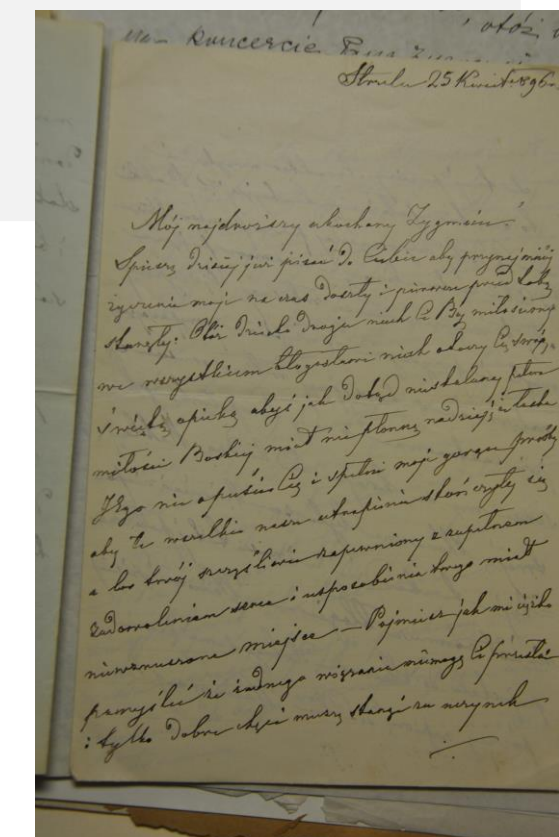 na koncercie Pana
otóż
25 Kwiet. 896
Mój najdroższy ukochany Zygmusiu!
Spieszę dzisiaj już pisać do Ciebie aby przynajmniej
życzenia moje na czas doszły i pierwsze przed Tobą
stanęły. Otóż Dziecko drogie niech Ci Bóg miłosierny
we wszystkiem błogosławi niech otoczy Cię swoją
świętą opieką abyś jak dotąd nieskalany pełen
miłości Boskiej miał nie płonną nadzieję iż łaska
Jego nie opuści Cię i spełni moje gorące prośby
aby te wszelkie nasze utrapienia skończyły się
a los twój szczęśliwie zapewniony z zupełnem
zadowoleniem serca i usposobienia twego miał
niewzruszone miejsce — Pojmiesz jak mi ciężko
pomyśleć że żadnego wiązania niemogę Ci przesłać
i tylko dobre chęci muszą starczyć za uczynek